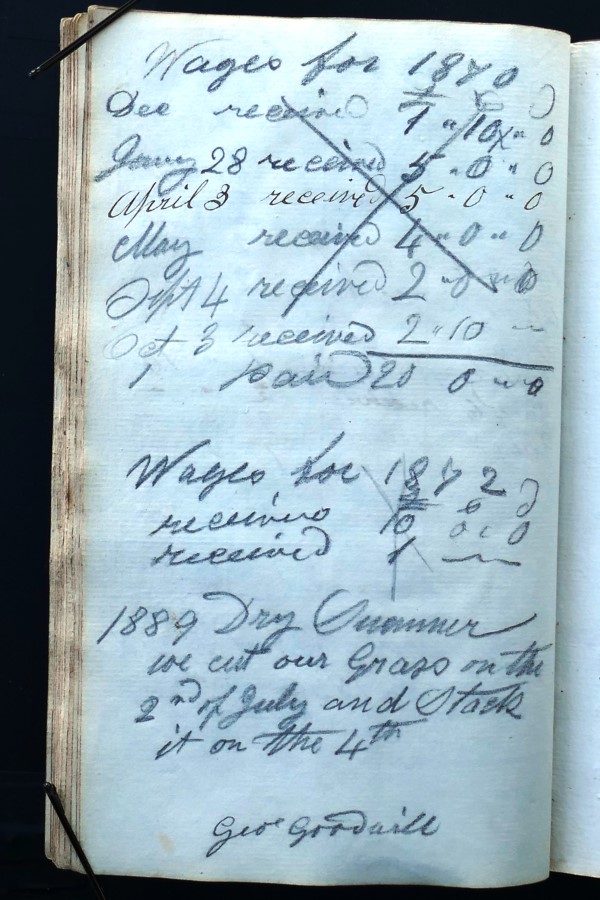 Wages for 1870
£ s D
Dec received 1 " 10 " 0
Janry 28 received 5 " 0 " 0
April 3 received 5 " 0 " 0
May received 4 " 0 " 0
Sept 4 received 2 " 0 " 0
Oct 3 received 2 " 10 "
1 Paid 20 0 " 0
Wages for 1872
£ s D
received 10 0 " 0
received 1
1889 Dry Summer
we cut our Grass on the
2nd of July and Stack
it on the 4th
Geoe Goodwill